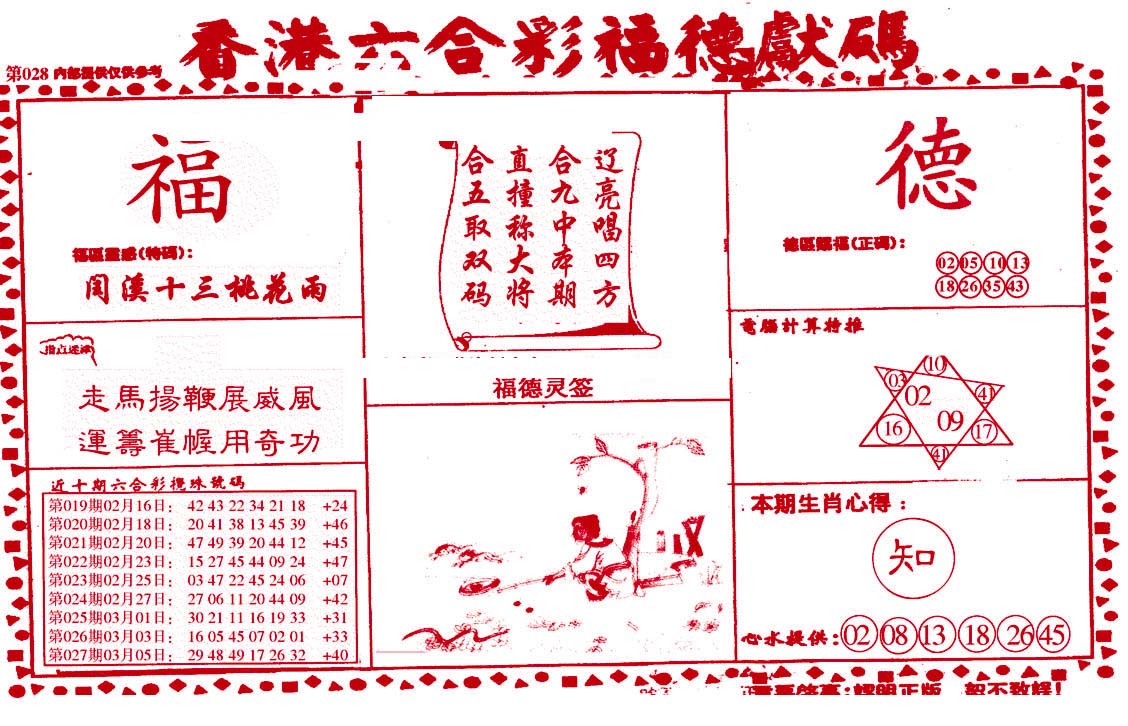 香港六合彩福德獻碼
第028 內部提供仅供参考
福
福區靈感(特碼):
闰溪十三桃花雨
指点迷津
走馬揚鞭展威風
運籌崔幄用奇功
近十期六合彩攪珠號碼
第019期02月16日: 42 43 22 34 21 18 +24
第020期02月18日: 20 41 38 13 45 39 +46
第021期02月20日: 47 49 39 20 44 12 +45
第022期02月23日: 15 27 45 44 09 24 +47
第023期02月25日: 03 47 22 45 24 06 +07
第024期02月27日: 27 06 11 20 44 09 +42
第025期03月01日: 30 21 11 16 19 33 +31
第026期03月03日: 16 05 45 07 02 01 +33
第027期03月05日: 29 48 49 17 26 32 +40
辽亮唱四方
合九中本期
直撞称大将
合五取双码
福德灵签
德
德區賜福(正碼):
02 05 10 13
18 26 35 43
電腦計算特推
10
03 02 41
16 09 17
41
本期生肖心得:
知
心水提供: 02 08 13 18 26 45